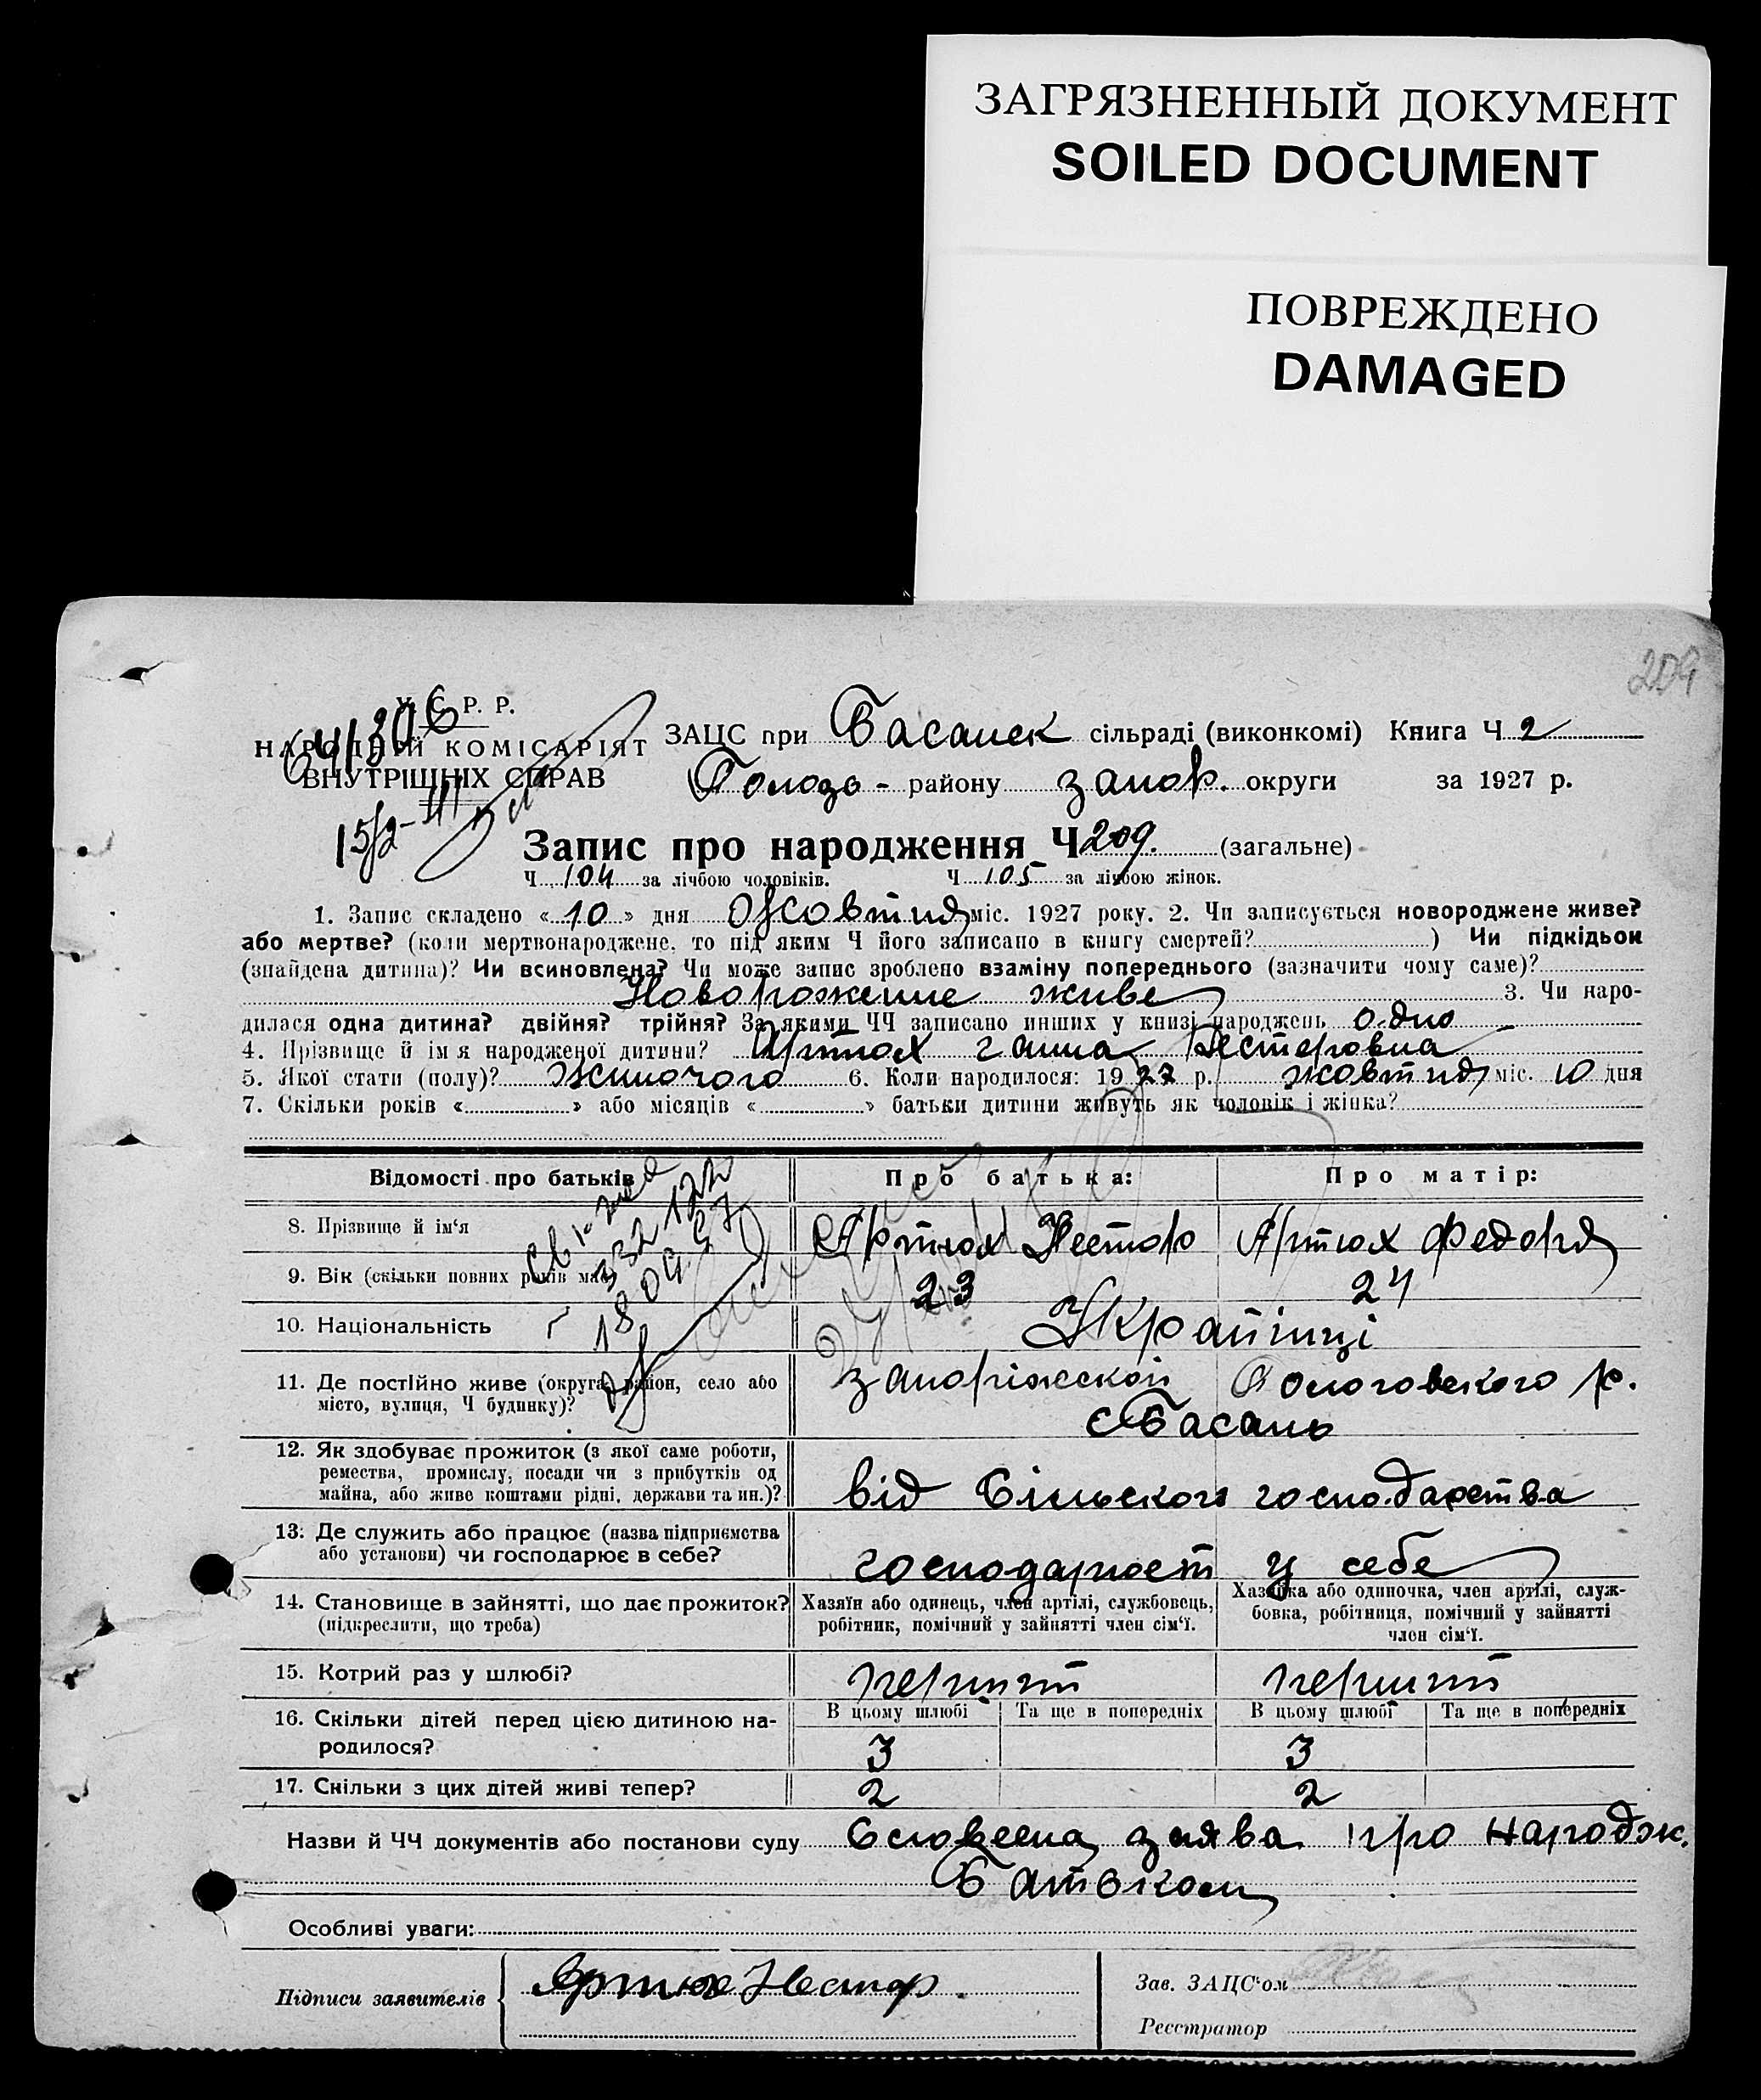 ЗАГРЯЗНЕННЫЙ ДОКУМЕНТ
SOILED DOCUMENT
ПОВРЕЖДЕНО
DAMAGED
209
У. С. Р. Р.
НАРОДНИЙ КОМІСАРІЯТ
ВНУТРІШНІХ СПРАВ
ЗАЦС при Басанск сільраді (виконкомі) Книга Ч 2
Полого- району запор. округи за 1927 р.
Запис про народження Ч 209. (загальне)
Ч 104 за лічбою чоловіків. Ч 105 за лічбою жінок.
1. Запис складено «10» дня Жовтня міс. 1927 року. 2. Чи записується новороджене живе?
або мертве? (коли мертвонароджене, то під яким Ч його записано в книгу смертей? ) Чи підкідьок
(знайдена дитина)? Чи всиновлена? Чи може запис зроблено взаміну попереднього (зазначити чому саме)?
Новорожение живе 3. Чи наро-
дилася одна дитина? двійня? трійня? За якими ЧЧ записано инших у книзі народжень одно
4. Прізвище й ім'я народженої дитини? Артюх Ганна Нестеровна
5. Якої стати (полу)? Жиночого 6. Коли народилося: 1927 р. жовтня міс. 10 дня
7. Скільки років « » або місяців « » батьки дитини живуть як чоловік і жінка?
Відомості про батьків Про батька: Про матір:
8. Прізвище й ім'я Артюх Нестор Артюх Федора
9. Вік (скільки повних років має) 23 24
10. Національність Українці
11. Де постійно живе (округа, район, село або
місто, вулиця, Ч будинку)? запоріжской Пологовского р.
с Басань
12. Як здобуває прожиток (з якої саме роботи,
ремества, промислу, посади чи з прибутків од
майна, або живе коштами рідні, держави та ин.)? від Сільского господарства
13. Де служить або працює (назва підприємства
або установи) чи господарює в себе? господарюет у себе
14. Становище в зайнятті, що дає прожиток?
(підкреслити, що треба)
Хазяїн або одинець, член артілі, службовець,
робітник, помічний у зайнятті член сім'ї.
Хазяйка або одиночка, член артілі, служ-
бовка, робітниця, помічний у зайнятті
член сім'ї.
15. Котрий раз у шлюбі? перший перший
В цьому шлюбі Та ще в попередніх В цьому шлюбі Та ще в попередніх
16. Скільки дітей перед цією дитиною на-
родилося? 3 3
17. Скільки з цих дітей живі тепер? 2 2
Назви й ЧЧ документів або постанови суду Словесна заява про народж.
Батьком
Особливі уваги:
Підписи заявителів Артюх Нестор.
Зав. ЗАЦС'ом
Реєстратор